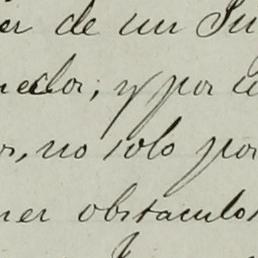 er de un Ju
nedor; y por u
or, no solo por
ner obstaculos